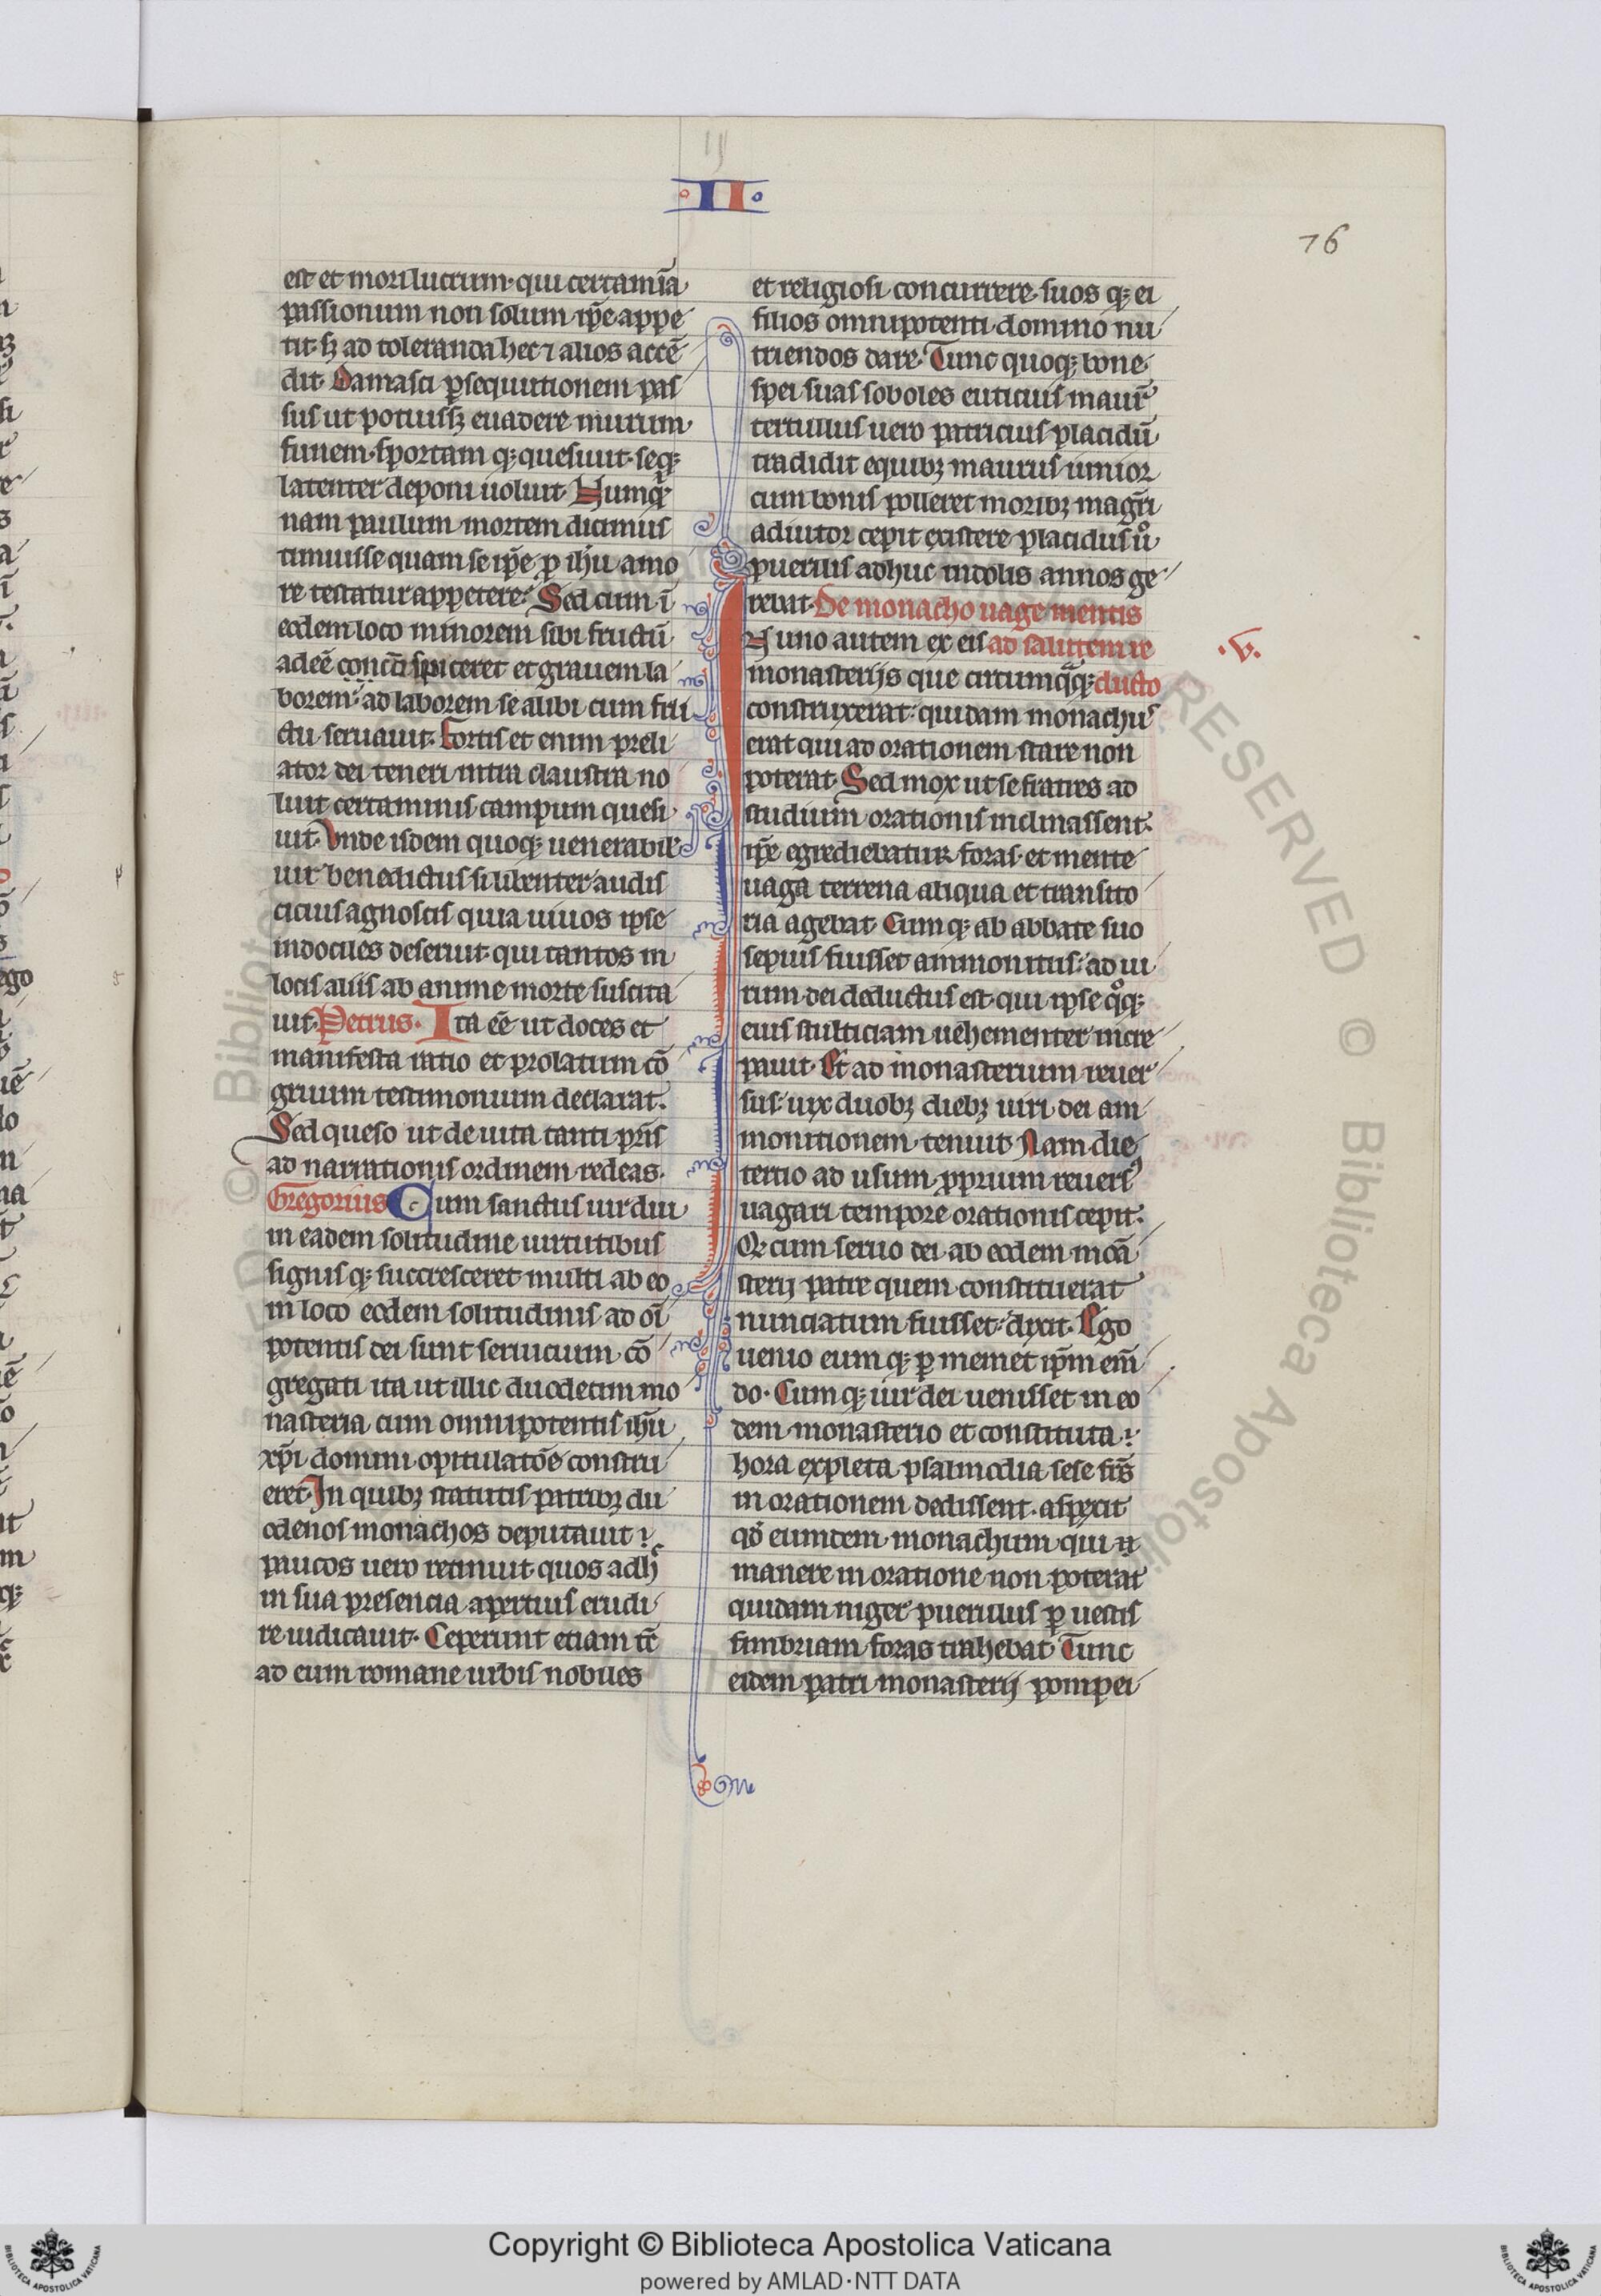 II
76
est et mori lucrum· qui certamīa
passionum non solum ip̄e appe
tit· sꝫ ad toleranda hec ⁊ alios accē
dit· Damasci ꝑsequutionem pas
sus ut potuissꝫ euadere murum
funem· sportam qꝫ quesiuit· seqꝫ
latenter deponi uoluit· Numqͥd
nam paulum mortem dicimus
timuisse quam se ip̄e ꝑ ih̄u amo
re testatur appetere· Sed cum ī
eodem loco minorem sibi fructū
adeē spiceret et grauem la
borem· ad laborem se alibi cum fru
ctu seruauit· Fortis et enim preli
ator dei teneri intra claustra no
luit certaminis campum quesi
uit· Unde isdem quoqꝫ uenerabil̄
uir benedictus si libenter audis
cicius agnoscis quia uiuos ipse
indociles deseruit· qui tantos in
locis aliis ab anime morte suscita
uit· Petrus· Ita eē ut doces et
manifesta ratio et prolatum cō
gruum testimonium declarat·
Sed queso ut de uita tanti pr̄is
ad narrationis ordinem redeas·
Gregorius Cum sanctus uir diu
in eadem solitudine uirtutibus
signis qꝫ succresceret multi ab eo
in loco eodem solitudinis ad oī
potentis dei sunt seruicium cō
gregati ita ut illic duodecim mo
nasteria cum omnipotentis ih̄u
xp̄i domini opitulatōe constru
eret· In quibꝫ statutis patribꝫ du
odenos monachos deputauit·
paucos uero retinuit· quos adhᶜ
in sua presencia apertius erudi
re iudicauit· Ceperunt etiam tc̄
ad eum romane urbis nobiles
et religiosi concurrere· suos qꝫ ei
filios omnipotenti domino nu
triendos dare· Tunc quoqꝫ bone
spei suas soboles euticius maur̄
tertullus uero patricius placidū
tradidit equibꝫ maurus iunior
cum bonis polleret moribꝫ magr̄i
adiutor cepit existere placidus ů
puerilis adhuc indolis annos ge
rebat· De monacho uage mentis
N uno autem ex eis ad salutem re
monasterijs que circumqᵃqꝫ ducto
·V·
construxerat· quidam monachus
erat qui ad orationem stare non
poterat· Sed mox ut se fratres ad
studium orationis inclinassent·
ip̄e egrediebatur foras· et mente
uaga terrena aliqua et transito
ria agebat· Cumqꝫ ab abbate suo
sepius fuisset ammonitus· ad ui
rum dei deductus est· qui ipse qͦqꝫ
eius stulticiam uehementer incre
pauit· Et ad monasterium reuer
sus· uix duobꝫ diebꝫ uiri dei am
monitionem tenuit· Nam die
tertio ad usum ꝓprium reuersꝰ
uagari tempore orationis cepit·
Qꝫ cum seruo dei ab eodem monā
sterij patre quem constituerat
nunciatum fuisset· dixit· Ego
uenio eumqꝫ ꝑ memet ip̄m em̄
do· Cumqꝫ uir dei uenisset in eo
dem monasterio et constituta
hora expleta psalmodia sese fr̄s
in orationem dedissent· aspexit
qď eumdem monachum qui
manere in oratione non poterat
quidam niger puerulus ꝑ uestis
fimbriam foras trahebat· Tunc
eidem patri monasterij pompei
Copyright © Biblioteca Apostolica Vaticana
powered by AMLAD·NTT DATA